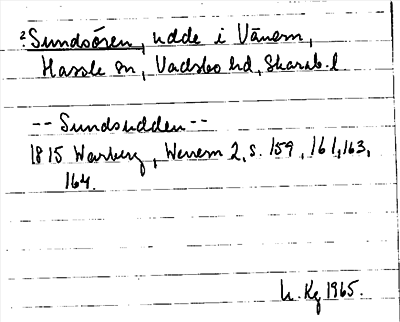 ?Sundsören, udde i Vänern,
Hassle sn, Vadsbo hd, Skarab. l
-- Sundsudden --
1815 Warberg, Wenern 2, s. 159, 161, 163,
164.
Kg 1965.